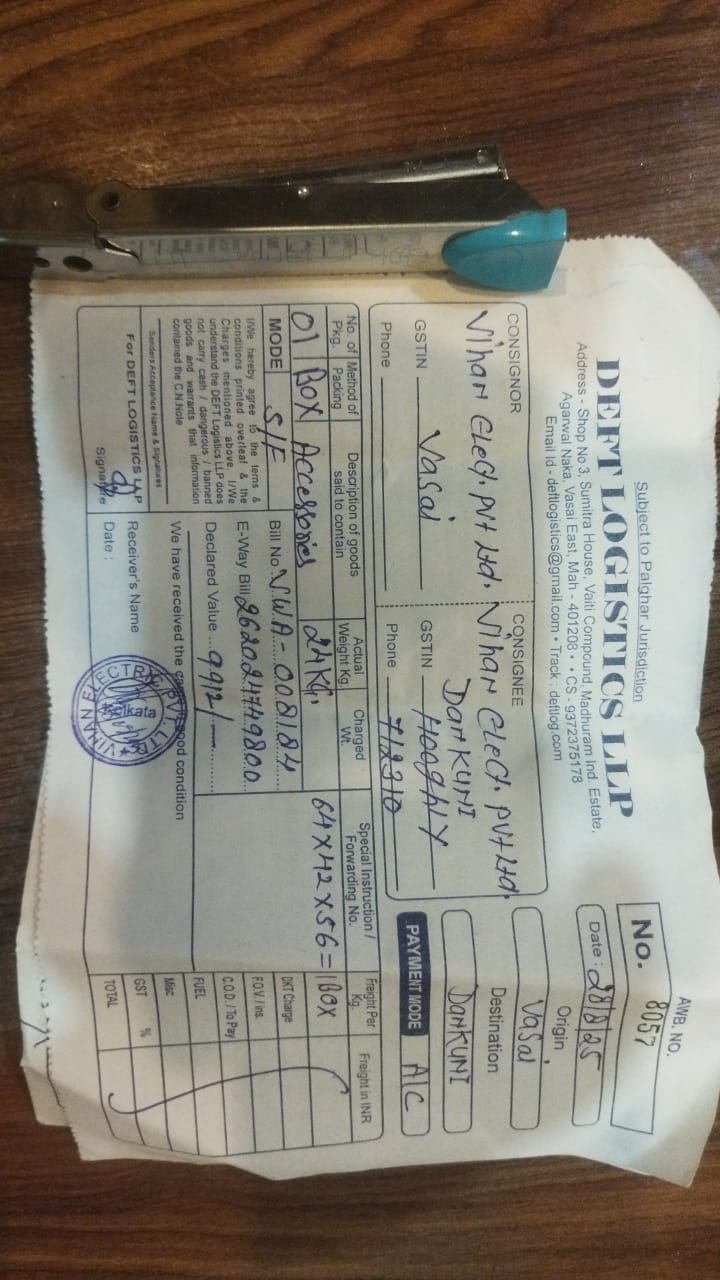 Subject to Palghar Jurisdiction
DEFT LOGISTICS LLP
Address - Shop No 3, Sumitra House, Vaiti Compound, Madhuram Ind. Estate,
Agarwal Naka, Vasai East, Mah - 401208 • CS - 9372375178
Email Id - deftlogistics@gmail.com • Track : deftlog.com
AWB. NO.
No. 8057
Date : 28/8/25
Origin
Vasai
Destination
DanKUNI
PAYMENT MODE A/C
CONSIGNOR
Vihan Elect. Pvt Ltd.
GSTIN Vasai
Phone
CONSIGNEE
Vihan Elect. Pvt Ltd.
DanKUNI
GSTIN Hooghly
Phone 712310
No. of Pkg. Method of Packing Description of goods said to contain Actual Weight Kg. Charged Wt. Special Instruction / Forwarding No. Freight Per Kg. Freight in INR
01 Box Accessories 24 KG. 64x42x56=1Box
MODE S/F
Bill No. VWA-008184
E-Way Bill 262024749800
Declared Value 9912/-
I/We hereby agree to the terms &
conditions printed overleaf & the
Charges mentioned above. I/We
understand the DEFT Logistics LLP does
not carry cash / dangerous / banned
goods and warrants that information
contained the C.N.Note
Senders Acceptance Name & Signatures
For DEFT LOGISTICS LLP
Signature
We have received the cargo good condition
Receiver's Name
Date :
DKT Charge
F.O.V. / Ins.
C.O.D. / To Pay
FUEL
Misc
GST %
TOTAL
VIHAN ELECTRIC PVT. LTD.
Kolkata